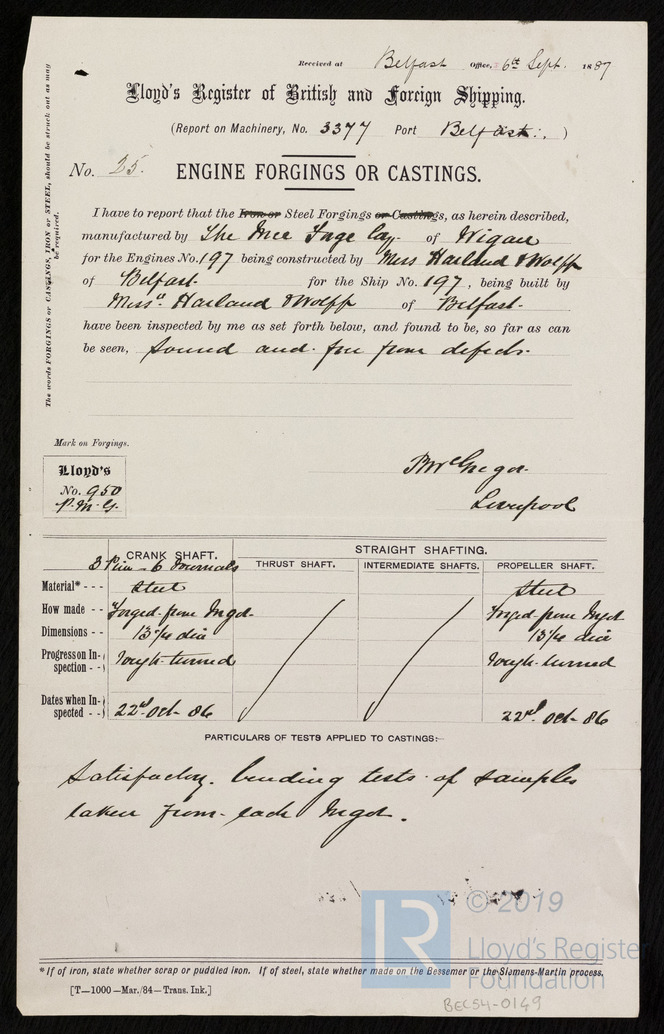 Received at Belfast Office, 6th Sept. 1887
Lloyd's Register of British and Foreign Shipping.
(Report on Machinery, No. 3377 Port Belfast.)
No. 25. ENGINE FORGINGS OR CASTINGS.
The words FORGINGS or CASTINGS, IRON or STEEL, should be struck out as may be required.
I have to report that the Iron or Steel Forgings or Castings, as herein described,
manufactured by The Forge Coy. of Wigan
for the Engines No. 197 being constructed by Mess Harland & Wolff
of Belfast for the Ship No. 197, being built by
Messrs Harland & Wolff of Belfast
have been inspected by me as set forth below, and found to be, so far as can
be seen, sound and free from defects.
Mark on Forgings.
Lloyd's
No. 950
P. McG.
P McGregor
Liverpool
CRANK SHAFT. STRAIGHT SHAFTING.
3 Pins - 6 Journals THRUST SHAFT. INTERMEDIATE SHAFTS. PROPELLER SHAFT.
Material* - - - Steel Steel
How made - - Forged from Ingot Forged from Ingot
Dimensions - - dia dia
Progress on Inspection - - rough turned rough turned
Dates when Inspected - - 22nd Oct 86 22nd Oct 86
PARTICULARS OF TESTS APPLIED TO CASTINGS:—
Satisfactory bending tests of samples
taken from each Ingot.
© 2019
LR
Lloyd's Register
Foundation
*If of iron, state whether scrap or puddled iron. If of steel, state whether made on the Bessemer or the Siemens-Martin process.
[T—1000—Mar./84—Trans. Ink.]
BEC54-0149